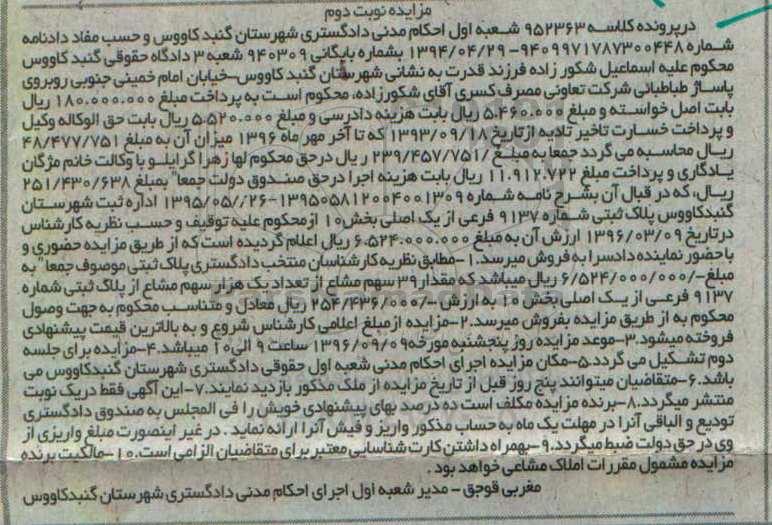 مزایده نوبت دوم
درپرونده کلاسه ۹۵۲۳۶۳ شعبه اول احکام مدنی دادگستری شهرستان گنبد کاووس و حسب مفاد دادنامه
شماره ۹۴۰۹۹۷۱۷۸۷۳۰۰۴۴۸ -۱۳۹۴/۰۴/۲۹ بشماره بایگانی ۹۴۰۳۰۹ شعبه ۳ دادگاه حقوقی گنبد کاووس
محکوم علیه اسماعیل شکور زاده فرزند قدرت به نشانی شهرستان گنبد کاووس-خیابان امام خمینی جنوبی روبروی
پاساژ طباطبائی شرکت تعاونی مصرف کسری آقای شکورزاده، محکوم است به پرداخت مبلغ ۱۸۰.۰۰۰.۰۰۰ ریال
بابت اصل خواسته و مبلغ ۵.۴۶۰.۰۰۰ ریال بابت هزینه دادرسی و مبلغ ۵.۵۲۰.۰۰۰ ریال بابت حق الوکاله وکیل
و پرداخت خسارت تاخیر تادیه ازتاریخ ۱۳۹۳/۰۹/۱۸ که تا آخر مهر ماه ۱۳۹۶ میزان آن به مبلغ ۴۸/۴۷۷/۷۵۱
ریال محاسبه می گردد جمعا به مبلغ /۲۳۹/۴۵۷/۷۵۱ ریال درحق محکوم لها زهرا گرایلو با وکالت خانم مژگان
یادگاری و پرداخت مبلغ ۱۱.۹۱۲.۷۲۲ ریال بابت هزینه اجرا درحق صندوق دولت جمعا" بمبلغ ۲۵۱/۴۳۰/۶۳۸
ریال، که در قبال آن بشرح نامه شماره ۱۳۹۵۰۵۸۱۲۰۰۴۰۰۱۳۰۹-۱۳۹۵/۰۵//۲۶ اداره ثبت شهرستان
گنبدکاووس پلاک ثبتی شماره ۹۱۳۷ فرعی از یک اصلی بخش۱۰ ازمحکوم علیه توقیف و حسب نظریه کارشناس
درتاریخ ۱۳۹۶/۰۳/۰۹ ارزش آن به مبلغ ۶.۵۲۴.۰۰۰.۰۰۰ ریال اعلام گردیده است که از طریق مزایده حضوری و
باحضور نماینده دادسرا به فروش میرسد.۱-مطابق نظریه کارشناسان منتخب دادگستری پلاک ثبتی موصوف جمعا" به
مبلغ-/۶/۵۲۴/۰۰۰/۰۰۰ ریال میباشد که مقدار۳۹ سهم مشاع از تعداد یک هزار سهم مشاع از پلاک ثبتی شماره
۹۱۳۷ فرعی از یک اصلی بخش ۱۰ به ارزش -/۲۵۴/۴۳۶/۰۰۰ ریال معادل و متناسب محکوم به جهت وصول
محکوم به از طریق مزایده بفروش میرسد.۲-مزایده ازمبلغ اعلامی کارشناس شروع و به بالاترین قیمت پیشنهادی
فروخته میشود.۳-موعد مزایده روز پنجشنبه مورخه۱۳۹۶/۰۹/۰۹ ساعت ۹ الی۱۰ میباشد.۴-مزایده برای جلسه
دوم تشکیل می گردد.۵-مکان مزایده اجرای احکام مدنی شعبه اول حقوقی دادگستری شهرستان گنبدکاووس می
باشد.۶-متقاضیان میتوانند پنج روز قبل از تاریخ مزایده از ملک مذکور بازدید نمایند.۷-این آگهی فقط دریک نوبت
منتشر میگردد.۸-برنده مزایده مکلف است ده درصد بهای پیشنهادی خویش را فی المجلس به صندوق دادگستری
تودیع و الباقی آنرا در مهلت یک ماه به حساب مذکور واریز و فیش آنرا ارائه نماید . در غیر اینصورت مبلغ واریزی از
وی در حق دولت ضبط میگردد.۹-بهمراه داشتن کارت شناسایی معتبر برای متقاضیان الزامی است.۱۰-مالکیت برنده
مزایده مشمول مقررات املاک مشاعی خواهد بود .
مغربی قوجق - مدیر شعبه اول اجرای احکام مدنی دادگستری شهرستان گنبدکاووس